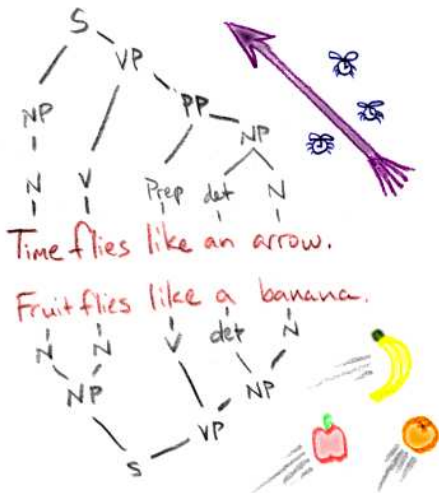 S
VP
PP
NP
NP
N
V
Prep
det
N
Time flies like an arrow.
Fruit flies like a banana.
N
N
V
det
N
NP
NP
VP
S